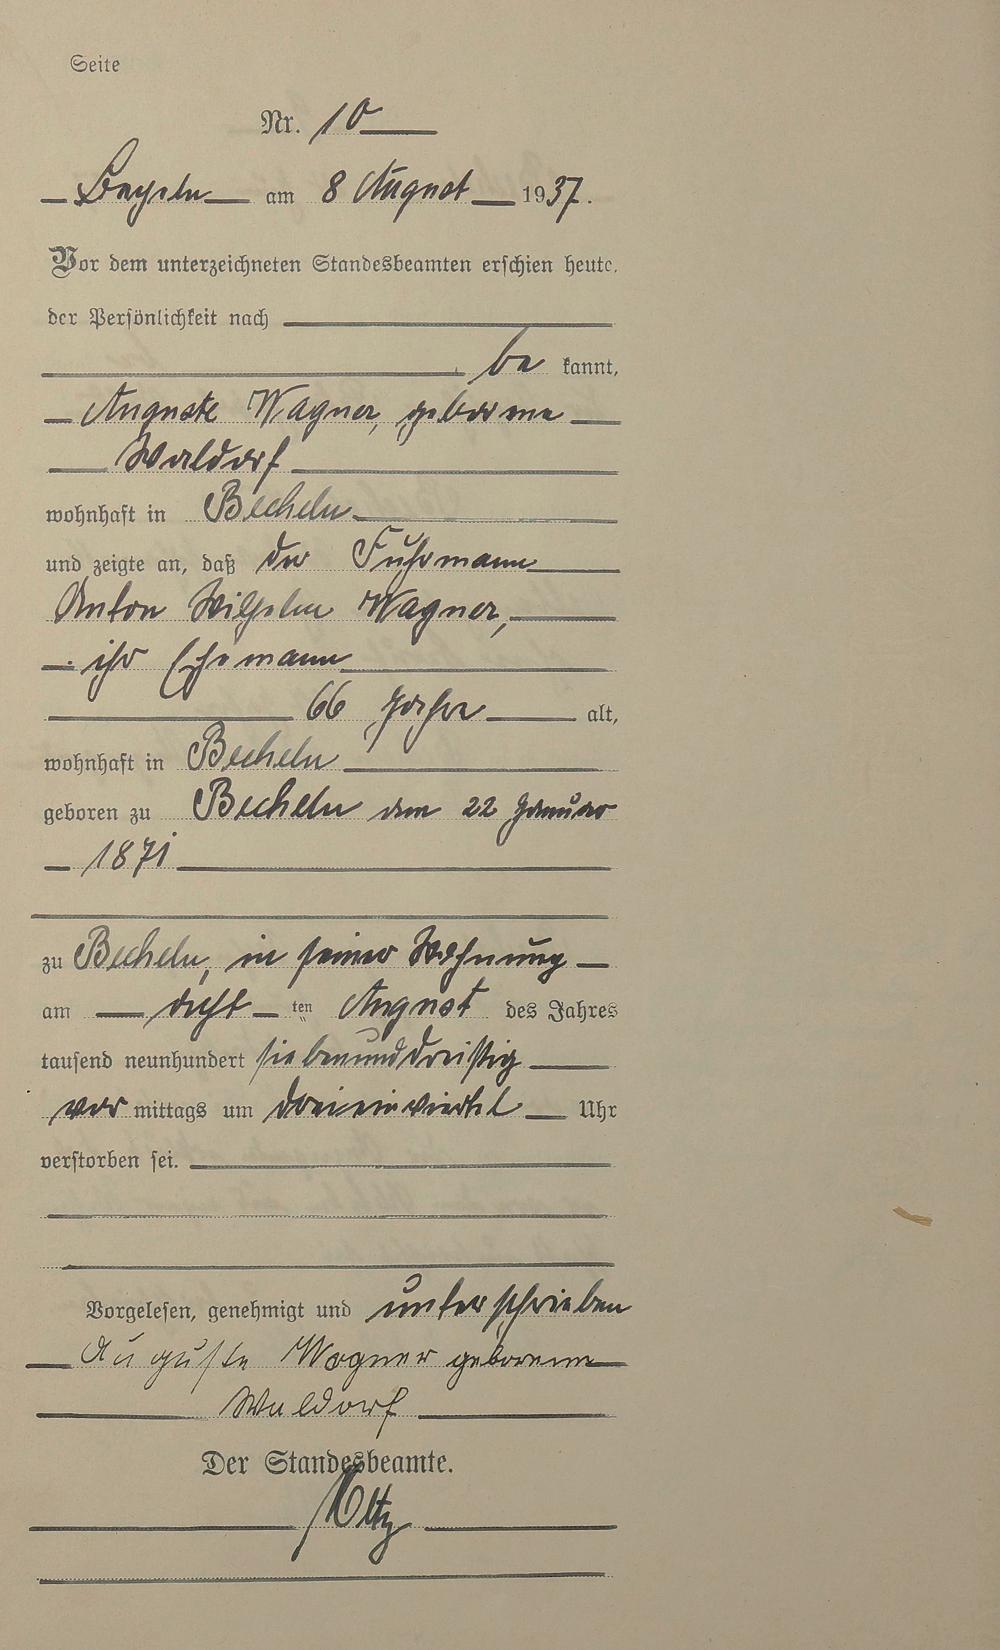 Seite
Nr. 10
Becheln am 8 August 1937.
Vor dem unterzeichneten Standesbeamten erschien heute,
der Persönlichkeit nach
be kannt,
Auguste Wagner, geborene
Waldorf
wohnhaft in Becheln
und zeigte an, daß der Fuhrmann
Anton Wilhelm Wagner,
ihr Ehemann
66 Jahre alt,
wohnhaft in Becheln
geboren zu Becheln am 22 Januar
1871
zu Becheln, in seiner Wohnung
am acht ten August des Jahres
tausend neunhundert siebenunddreißig
vor mittags um dreieinviertel Uhr
verstorben sei.
Vorgelesen, genehmigt und unterschrieben
Auguste Wagner geborene
Waldorf
Der Standesbeamte.